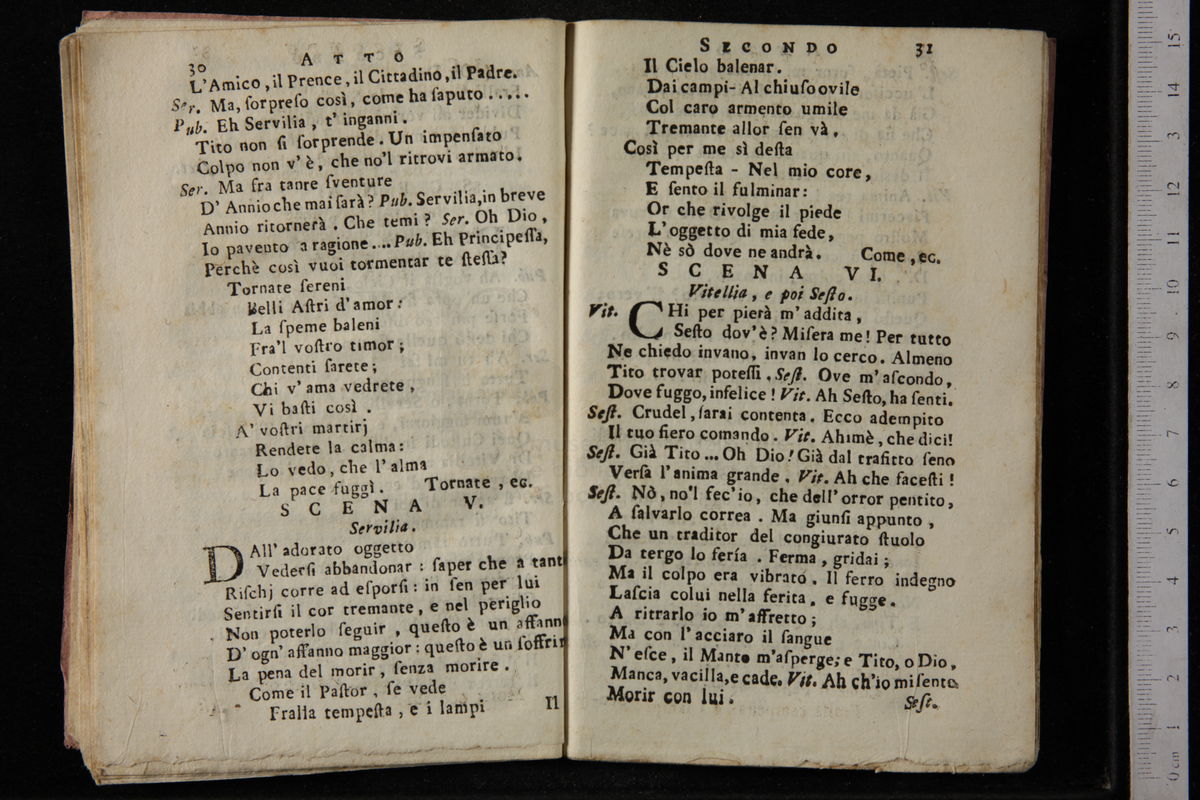 30
ATTO
L'Amico, il Prence, il Cittadino, il Padre.
Ser. Ma, ſorpreſo così, come ha ſaputo .....
Pub. Eh Servilia, t'inganni.
Tito non ſi ſorprende. Un impenſato
Colpo non v'è, che no'l ritrovi armato.
Ser. Ma fra tanre ſventure
D'Annio che mai ſarà? Pub. Servilia, in breve
Annio ritornerà. Che temi? Ser. Oh Dio,
Io pavento a ragione .... Pub. Eh Principeſſa,
Perchè così vuoi tormentar te ſteſſa?
Tornate ſereni
Belli Aſtri d'amor:
La ſpeme baleni
Fra'l voſtro timor;
Contenti ſarete;
Chi v'ama vedrete,
Vi baſti così.
A' voſtri martirj
Rendete la calma:
Lo vedo, che l'alma
La pace fuggì. Tornate, ec.
SCENA V.
Servilia.
DAll'adorato oggetto
Vederſi abbandonar: ſaper che a tant
Riſchj corre ad eſporſi: in ſen per lui
Sentirſi il cor tremante, e nel periglio
Non poterlo ſeguir, queſto è un affann
D'ogn'affanno maggior: queſto è un ſoffrir
La pena del morir, ſenza morire.
Come il Paſtor, ſe vede
Fralla tempeſta, e i lampi
Il
SECONDO
31
Il Cielo balenar.
Dai campi - Al chiuſo ovile
Col caro armento umile
Tremante allor ſen và,
Così per me sì deſta
Tempeſta - Nel mio core,
E ſento il fulminar:
Or che rivolge il piede
L'oggetto di mia fede,
Nè sò dove ne andrà. Come, ec.
SCENA VI.
Vitellia, e poi Seſto.
Vit. CHi per pierà m'addita,
Seſto dov'è? Miſera me! Per tutto
Ne chiedo invano, invan lo cerco. Almeno
Tito trovar poteſſi. Seſt. Ove m'aſcondo,
Dove fuggo, infelice! Vit. Ah Seſto, ha ſenti.
Seſt. Crudel, ſarai contenta. Ecco adempito
Il tuo fiero comando. Vit. Ahimè, che dici!
Seſt. Già Tito ... Oh Dio! Già dal trafitto ſeno
Verſa l'anima grande. Vit. Ah che faceſti!
Seſt. Nò, no'l fec'io, che dell'orror pentito,
A ſalvarlo correa. Ma giunſi appunto,
Che un traditor del congiurato ſtuolo
Da tergo lo fería. Ferma, gridai;
Ma il colpo era vibrato. Il ferro indegno
Laſcia colui nella ferita, e fugge.
A ritrarlo io m'affretto;
Ma con l'acciaro il ſangue
N'eſce, il Manto m'aſperge; e Tito, o Dio,
Manca, vacilla, e cade. Vit. Ah ch'io mi ſento
Morir con lui.
Seſt.
15
14
13
12
11
10
9
8
7
6
5
4
3
2
1
0 cm